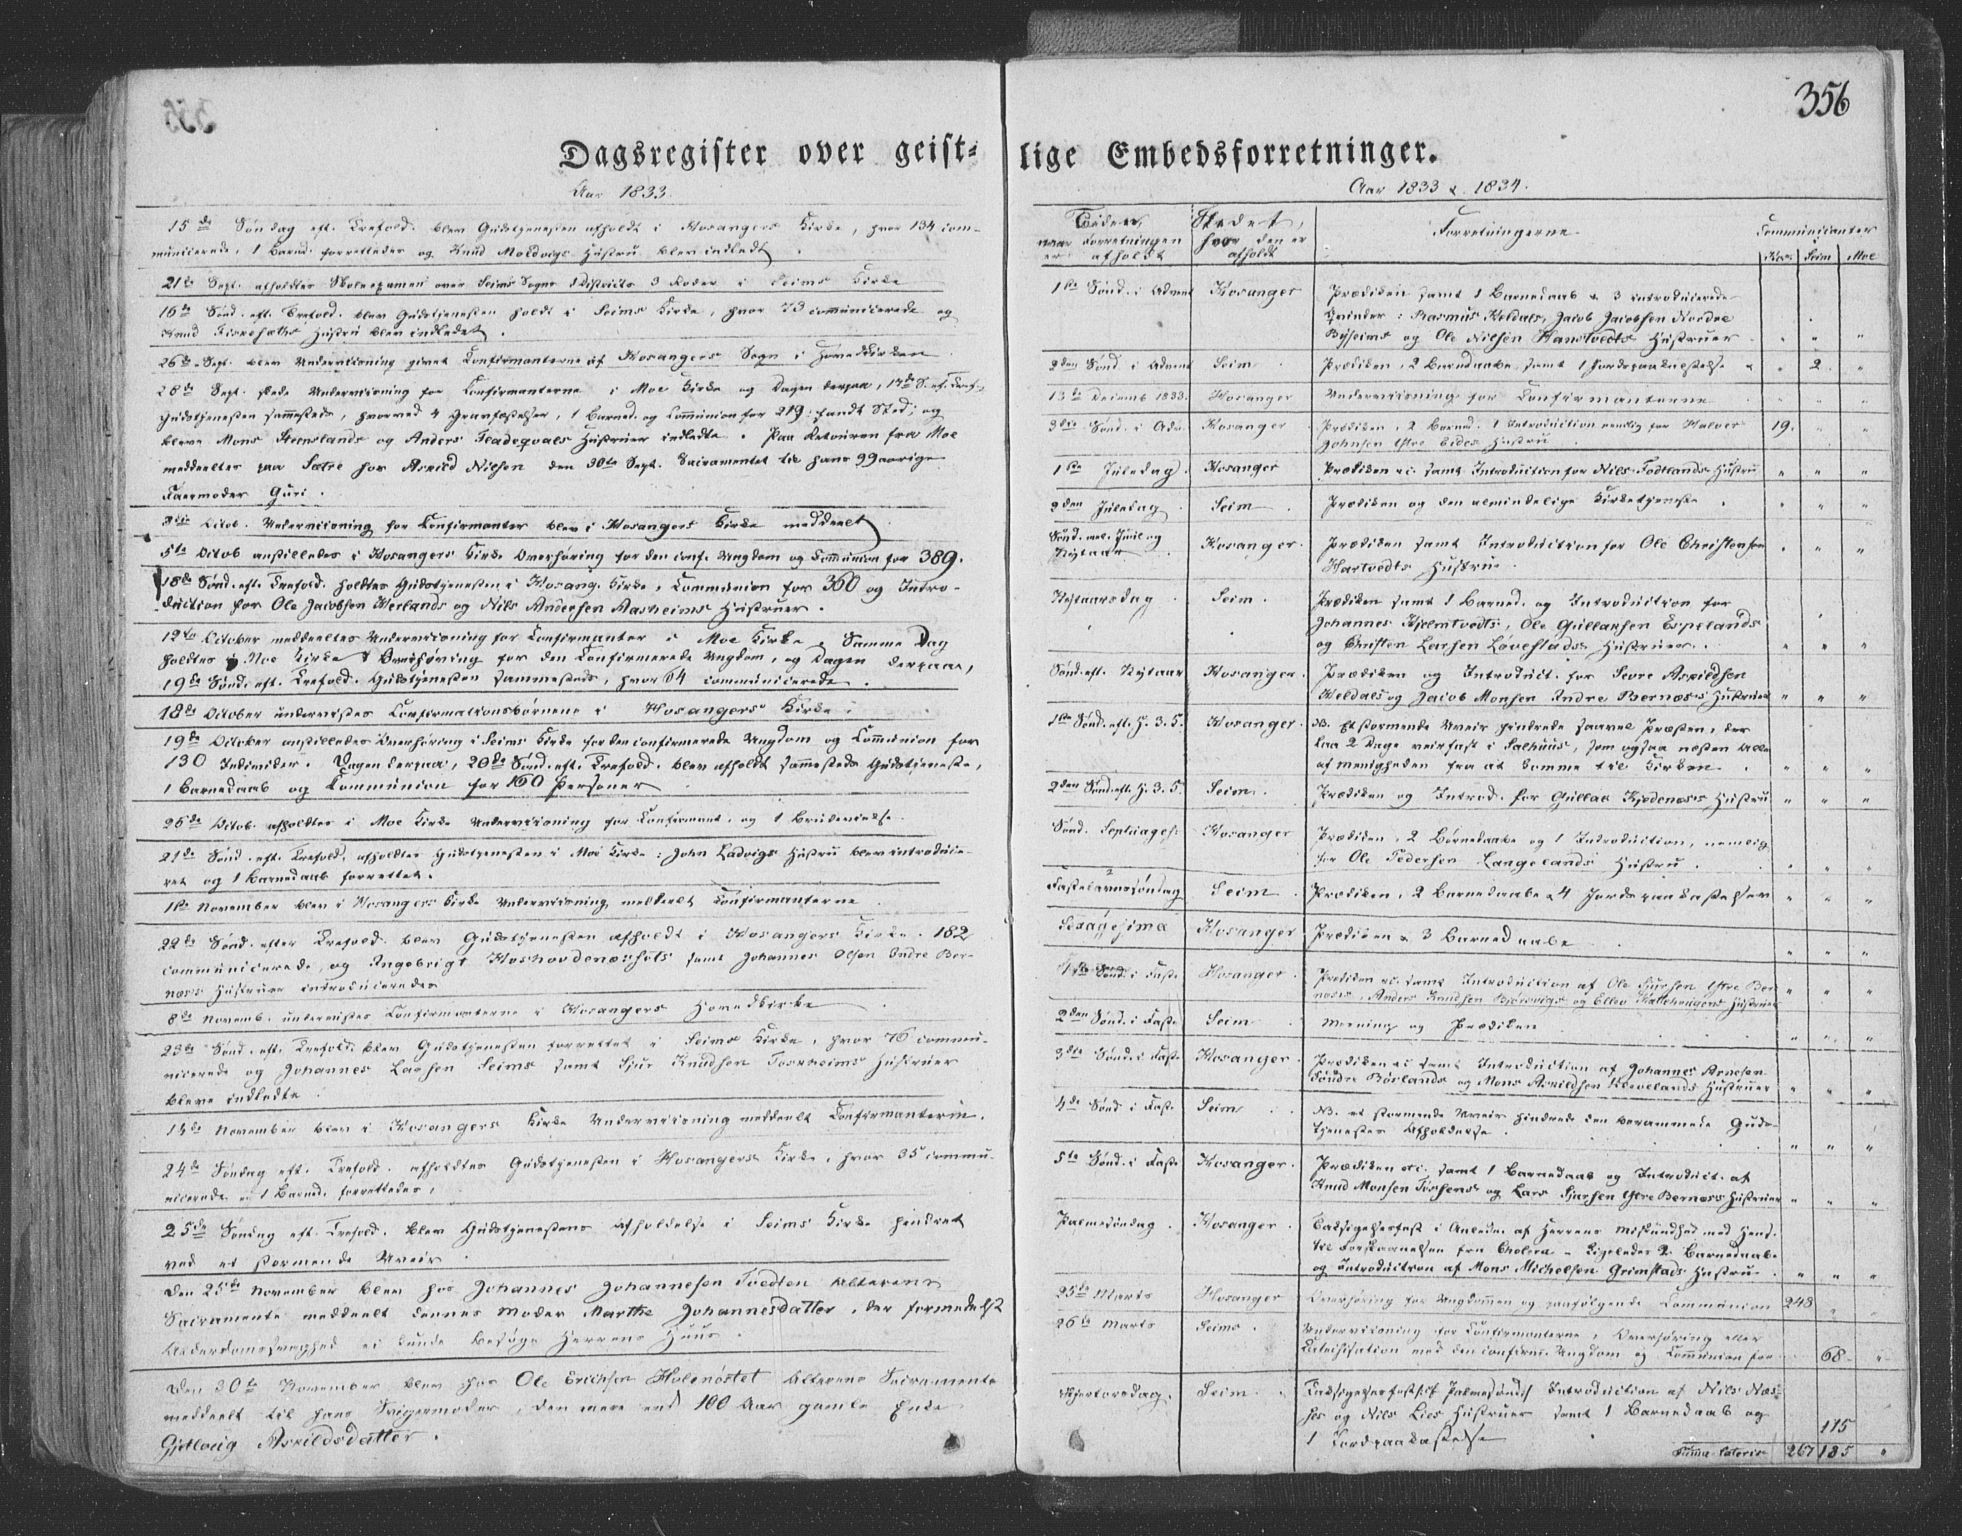 356
Dagsregister over geist-
lige Embedsforretninger.
Aar 1833.
15de Søndag eft. Trefold. blev Gudstjenesten afholdt i Hosangers Kirke, hvor 134 com-
municerede, 1 Barned. forrettedes og Knud Moldvigs Hustru blev indledt.
21de Sept. afholdtes Skoleexamen over Seims Sogns Districts 3 Roder i Seims Kirke
16de Sønd. eft. Trefold. blev Gudstjenesten holdt i Seims Kirke, hvor 73 communicerede og
Knud Hustru blev indledet.
26de Sept. blev Underviisning givet Confirmanterne af Hosangers Sogn i Hovedkirken
28de Sept. skede Underviisning for Confirmanterne i Moe Kirke og Dagen derpaa, 17de S. ef. Tref.
Gudstjenesten sammesteds, hvorved 4 Gravfæstelser, 1 Barned. og Communion for 219 fandt Sted; og
bleve Mons Steenslands og Anders Hustruer indledte. Paa Retouren fra Moe
meddeeltes paa Sætre hos Askild Nilsen den 30te Sept. Sacramentet til hans 99 aarige
Faermoder Guri.
Octob. Underviisning for Confirmanter blev i Hosangers Kirke meddeelt
5te Octob anstilledes i Hosangers Kirke Overhøring for den conf. Ungdom og Communion for 389.
18de Sønd. eft. Trefold. holdtes Gudstjenesten i Hosang. Kirke, Communion for 360 og Intro-
duction for Ole Jacobsen Herlands og Nils Andersen Aasheims Hustruer.
12te October meddeeltes Underviisning for Confirmanter i Moe Kirke, Samme Dag
holdtes i Moe Kirke Overhøring for den Confirmerede Ungdom, og Dagen derpaa,
19de Sønd. eft. Trefold. Gudstjenesten sammesteds, hvor 64 communicerede.
18de October undervistes Confirmationsbørnene i Hosangers Kirke.
19de October anstilledes Overhøring i Seims Kirke for den confirmerede Ungdom og Communion for
130 Individer. Dagen derpaa, 20de Sønd. eft. Trefold. blev afholdt sammesteds Gudstjeneste,
1 Barnedaab og Communion for 160 Personer
26de Octob. afholdtes i Moe Kirke Underviisning for Confirmant. og 1 Brudevielse.
21de Sønd. eft. Trefold. afholdtes Gudstjenesten i Moe Kirke: John Ladvigs Hustru blev introduce-
ret og 1 Barnedaab forrettet.
1te November blev i Hosangers Kirke Underviisning meddeelt Confirmanterne
22de Sønd. efter Trefold. blev Gudstjenesten afholdt i Hosangers Kirke. 182
communicerede, og Ingebrigt samt Johannes Olsen Indre Ber-
næss Hustruer introduceredes
8de Novemb. undervistes Confirmanterne i Hosangers Hovedkirke
23de Sønd. eft. Trefold. blev Gudstjenesten forrettet i Seims Kirke, hvor 76 commu-
nicerede og Johannes Larsen Seims samt Sjur Knudsen Hustruer
bleve indledte.
November blev i Hosangers Kirke Underviisning meddeelt Confirmanterne.
24de Søndag eft. Trefold. afholdtes Gudstjenesten i Hosangers Kirke, hvor 35 commu-
nicerede og 1 Barned. forrettedes.
25de Søndag eft. Trefold. blev Gudstjenestens Afholdelse i Seims Kirke hindret
ved et stormende Uveir.
Den 25de November blev hos Johannes Johannesen Alterens
Sacramente meddeelt dennes Moder Marthe Johannesdatter, der formedelst
Alderdomssvaghed ei kunde besøge Herrens Huus.
Den 30te November blev hos Ole Erichsen Alterens Sacramente
meddeelt til hans Svigermoder, den mere end 100 Aar gamle Enke
Askildsdatter.
Aar 1833 & 1834.
Tiden, naar Forretningen er afholdt
Stedet, hvor den er afholdt
Forretningerne
Communicanter
Hos. Seim Moe
1ste Sønd. i Advent Hosanger Prædiken samt 1 Barnedaab & 3 introducerede
Qvinder: Rasmus Keldals, Jacob Jacobsen Nordre
Byseims og Ole Nilsen Hantvedts Hustruer
2den Sønd. i Advent Seim Prædiken, 2 Barnedaabe samt 1 Jordpaakastelse 2
13de Decemb 1833. Hosanger Underviisning for Confirmanterne
3die Sønd. i Adv. Hosanger Prædiken, 2 Barned. 1 Introduction nemlig for Halvor 19.
Johnsen Ytre Eides Hustru
1ste Juledag. Hosanger Prædiken etc. samt Introduction for Nils Hustru
2den Juledag Seim Prædiken og den almindelige Kirketjeneste
Sønd. mel. Juul og
Nytaar Hosanger. Prædiken samt Introduction for Ole Christensen
Hartvedts Hustru.
Nytaarsdag Seim. Prædiken samt 1 Barned. og Introduction for
Johannes Hjelmtvedts, Ole Gullaksen Espelands
og Christen Larsen Løvestads Hustruer.
Sønd. eft. Nytaar Hosanger. Prædiken og Introduct. for Sevre Askildsen
Keldals og Jacob Monsen Indre Bernæss Hustruer
1ste Sønd. eft. H. 3. K. Hosanger. NB. Et stormende Uveir hindrede saavel Præsten, der
laa 2 Dage veirfast i Salhuus, som ogsaa næsten alle
af menigheden fra at komme til Kirken.
2den Sønd. eft. H. 3. K. Seim. Prædiken og Introd. for Gullak Hustru
Sønd. Septuages. Hosanger Prædiken, 2 Børnedaabe og 1 Introduction, nemlig
for Ole Pedersen Langelands Hustru.
Fastelavnssøndag Seim Prædiken, 2 Barnedaabe & 4 Jordspaakastelser
Sexagesima Hosanger Prædiken & 3 Barnedaabe
1ste Sønd. i Fast. Hosanger. Prædiken etc. samt Introduction af Ole Sjursen Ytre Ber-
næss, Anders Knudsen og Ellev Hustruer
2den Sønd. i Fast. Seim Messning og Prædiken
3die Sønd. i Fast. Hosanger. Prædiken etc. samt Introduction af Johannes Arnesen
Søndre Røslands og Mons Askildsen Klevelands Hustruer
4de Sønd. i Fast. Seim. NB. et stormende Uveir hindrede den berammede Guds-
tjenestes Afholdelse.
5te Sønd. i Fast. Hosanger. Prædiken etc. samt 1 Barnedaab og Introduct. af
Knud Monsen Tissens og Lars Sjursen Ytre Bernæss Hustruer
Palmesøndag. Hosanger. Taksigelsesfest i Anledn. af Herrens Miskundhed med Hens.
til Forskaanelsen fra Cholera. Ligeledes 2 Barnedaabe
og Introduction af Mons Michelsen Grimstads Hustru.
25de Marts Hosanger Overhøring for Ungdommen og paafølgende Communion 248
26de Marts Seims. Underviisning for Confirmanterne, Overhøring eller
Katechisation med den confirm. Ungdom og Communion for 68
Skjærtorsdag. Seim. Introduction af Nils Næs-
ses og Nils Lies Hustruer samt 1 Barnedaab og
1 Jordpaakastelse 115
Summa lateris 267 185